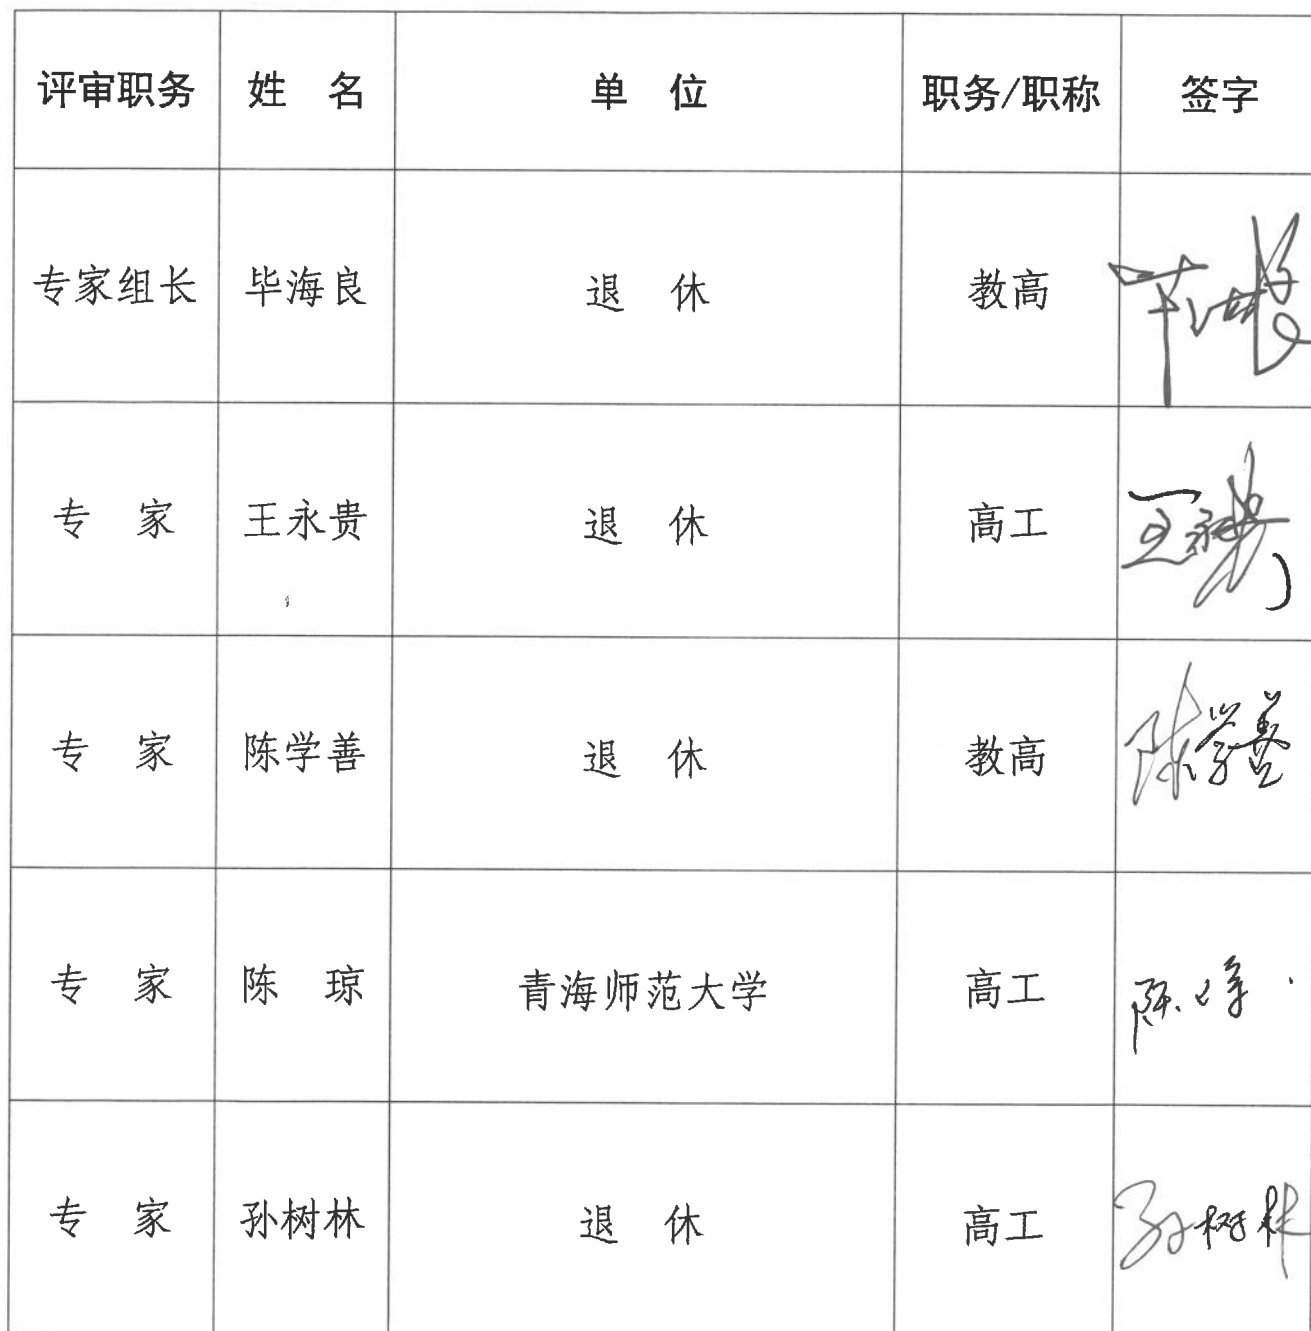 评审职务 姓 名 单 位 职务/职称 签字
专家组长 毕海良 退 休 教高
专 家 王永贵 退 休 高工 王永贵
专 家 陈学善 退 休 教高 陈学善
专 家 陈 琼 青海师范大学 高工
专 家 孙树林 退 休 高工 孙树林